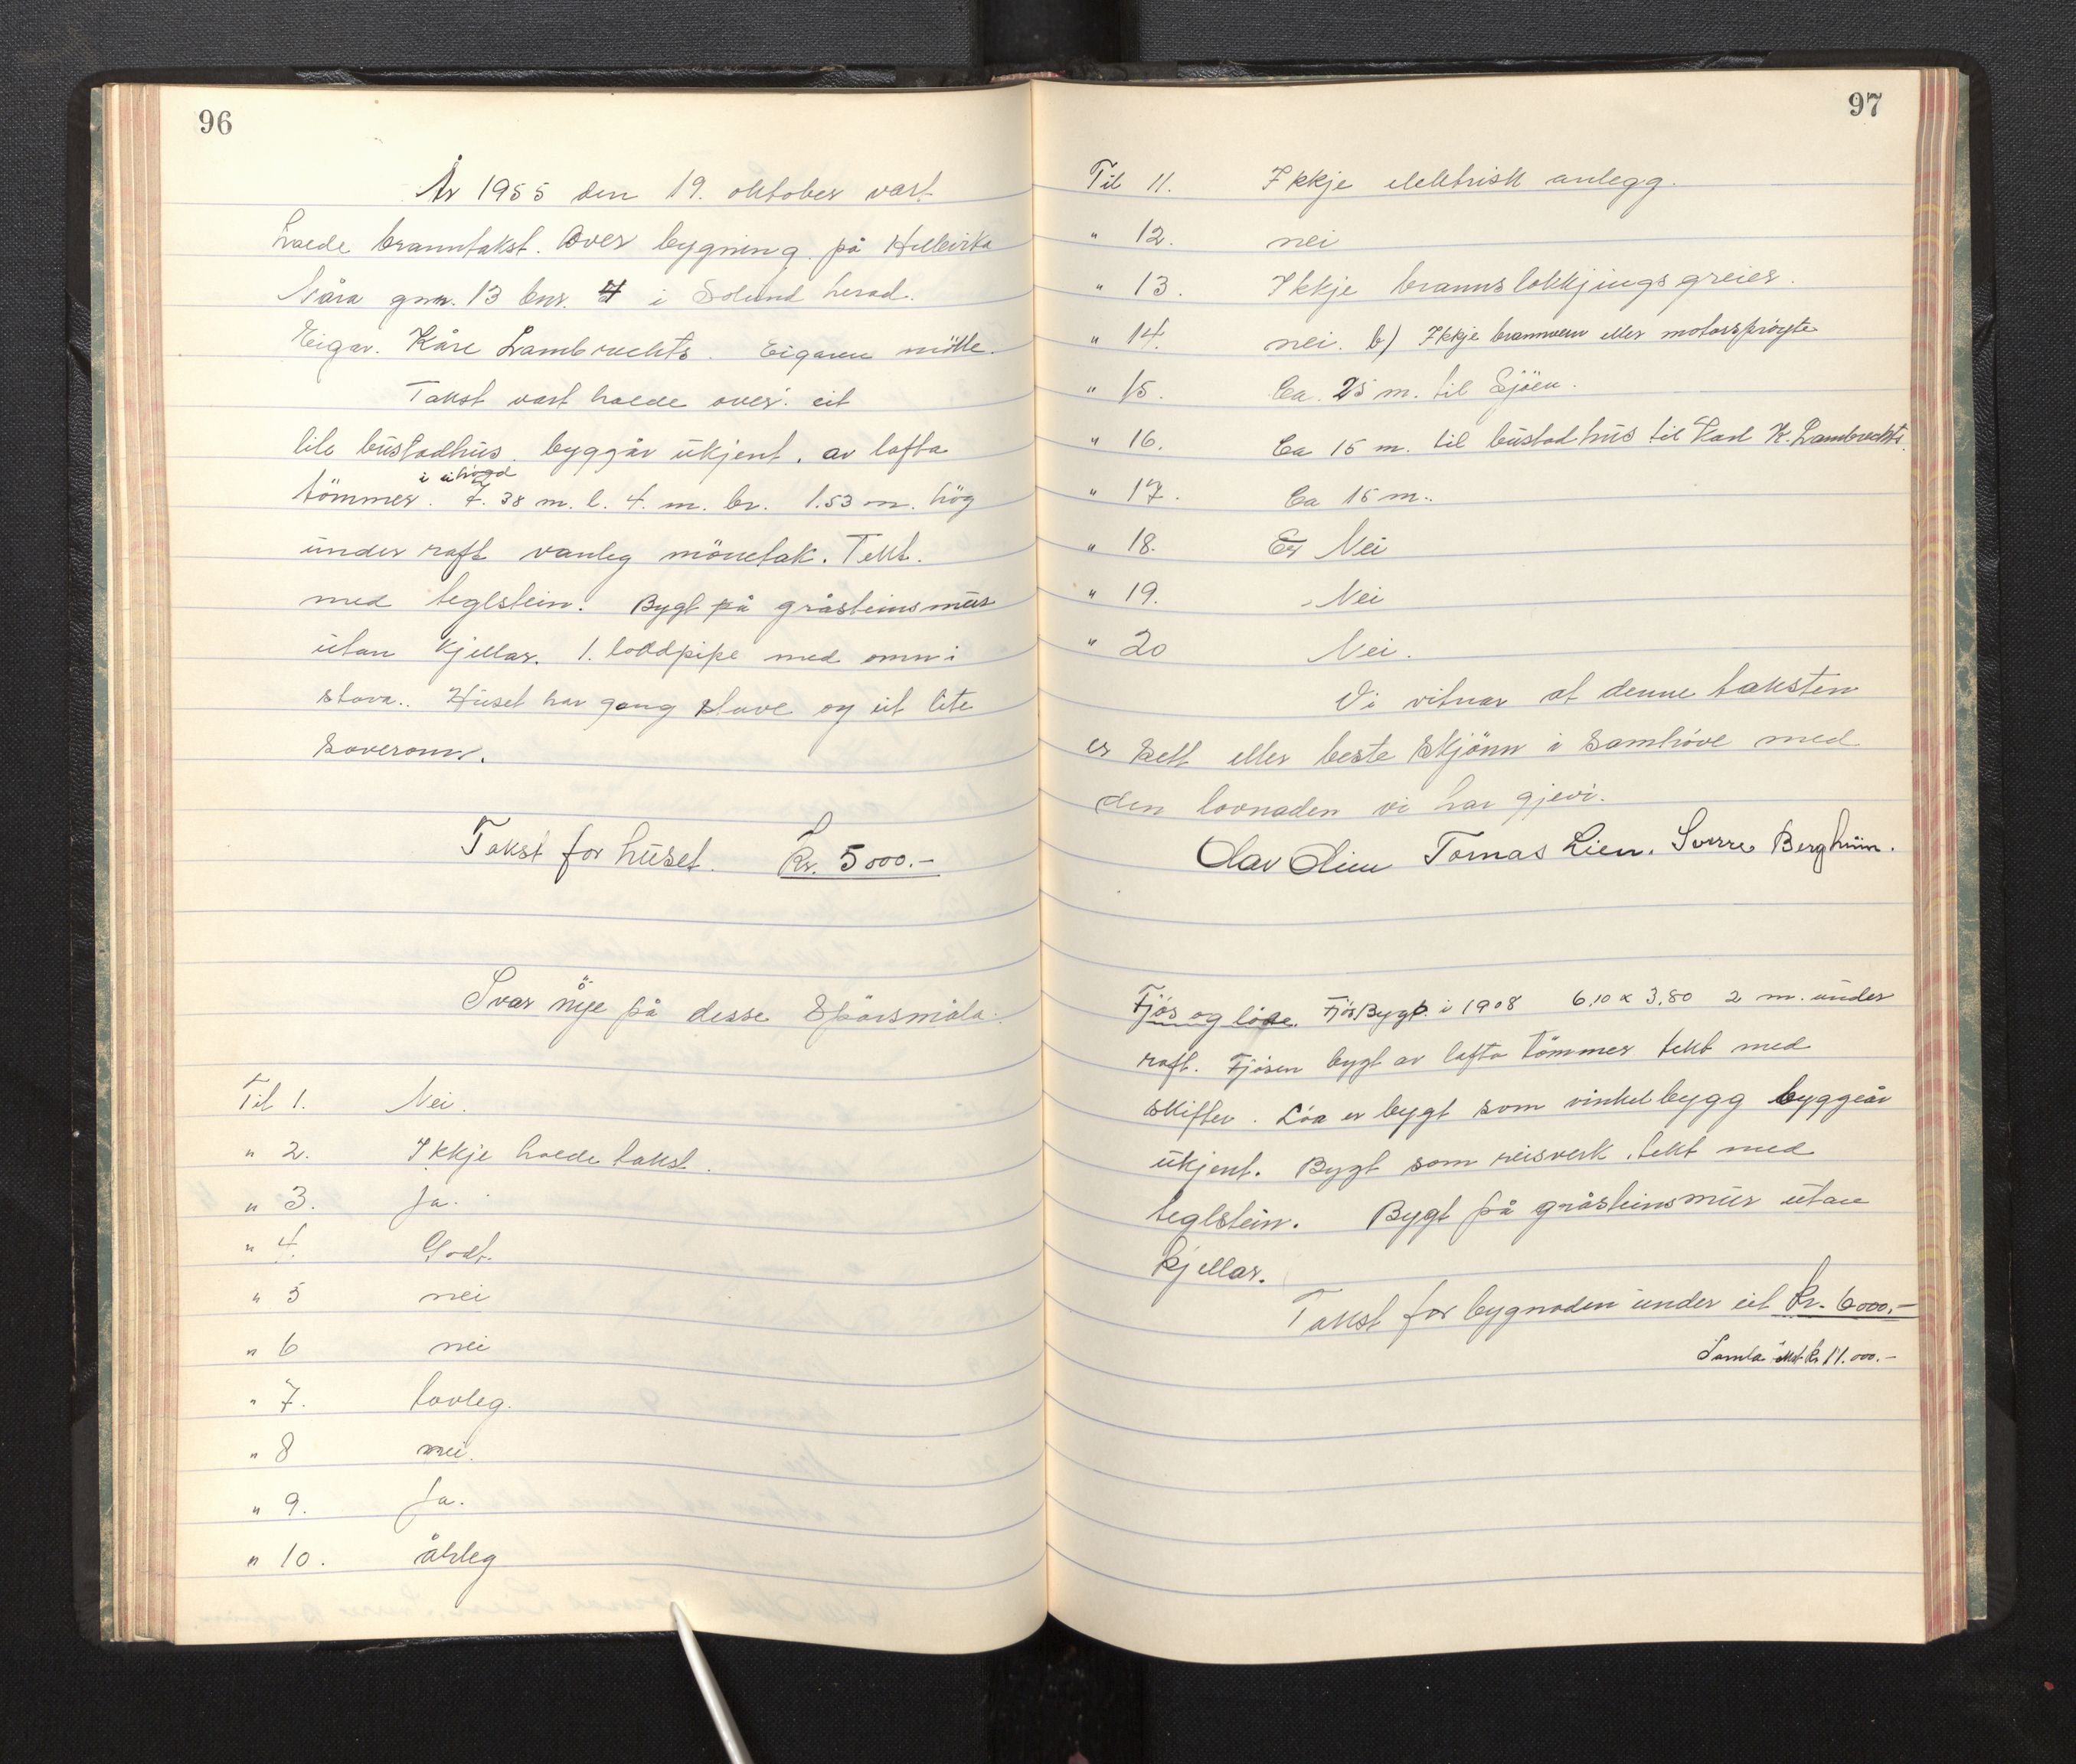 96
År 1955 den 19. oktober vart
halde branntakst. Over bygning på Hellvika
Nåra gnr. 13 bnr. 4 i Solund herad.
Eigar. Kåre Lambrechts. Eigaren mötte.
Takst vart halde over: eit
lite bustadhus. byggår ukjent. av lafta
i ei högd
tömmer. 7.38 m. l. 4. m. br. 1.53 m. hög
under raft vanleg mönetak. Tekt.
med teglstein. Bygt på gråsteinsmur
utan kjellar. 1. loddpipe med omn i
stova.. Huset har gang stove og eit lite
soverom.
Takst for huset. Kr. 5000.-
Svar på desse Spörsmåla:
Til 1. Nei.
" 2. Ikkje halde takst.
" 3. Ja.
" 4. Godt.
" 5 nei
" 6 nei
" 7. lovleg.
" 8 nei.
" 9. Ja.
" 10. årleg
97
Til 11. Ikkje elektrisk anlegg.
" 12. nei
" 13. Ikkje brannslökkjingsgreier.
" 14. nei. b) Ikkje brannvern eller motorspröyte
" 15. Ca. 25 m. til Sjöen.
" 16. Ca 15 m. til bustadhus til Karl K. Lambrechts.
" 17. Ca 15 m..
" 18. Er Nei
" 19. Nei
" 20 Nei.
Vi vitnar at denne taksten
er sett etter beste skjönn i samhöve med
den lovnaden vi har gjevi.
Olav Lien Tomas Lien. Sverre Berghum.
Fjös og löe. Fjös Bygt. i 1908 6,10 x 3,80 2 m. under
raft. Fjösen bygt av lafta tömmer tekt med
skifter. Löa er bygt som vinkelbygg byggeår
ukjent. Bygt som reisverk. tekt med
teglstein. Bygt på gråsteinsmur utan
kjellar.
Takst for bygnaden under eit Kr. 6000.-
Samla takst Kr 11.000.-